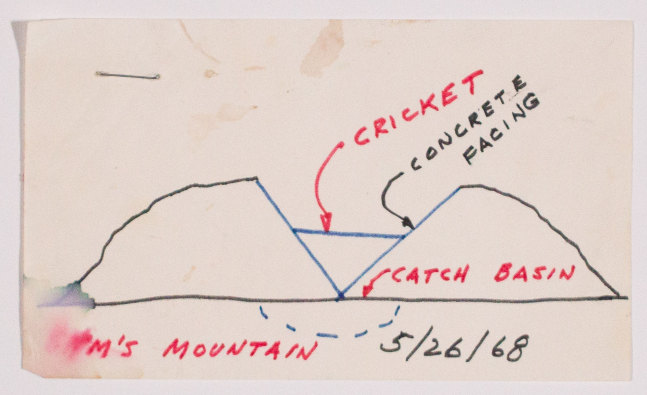 CRICKET
CONCRETE
FACING
CATCH BASIN
M'S MOUNTAIN
5/26/68